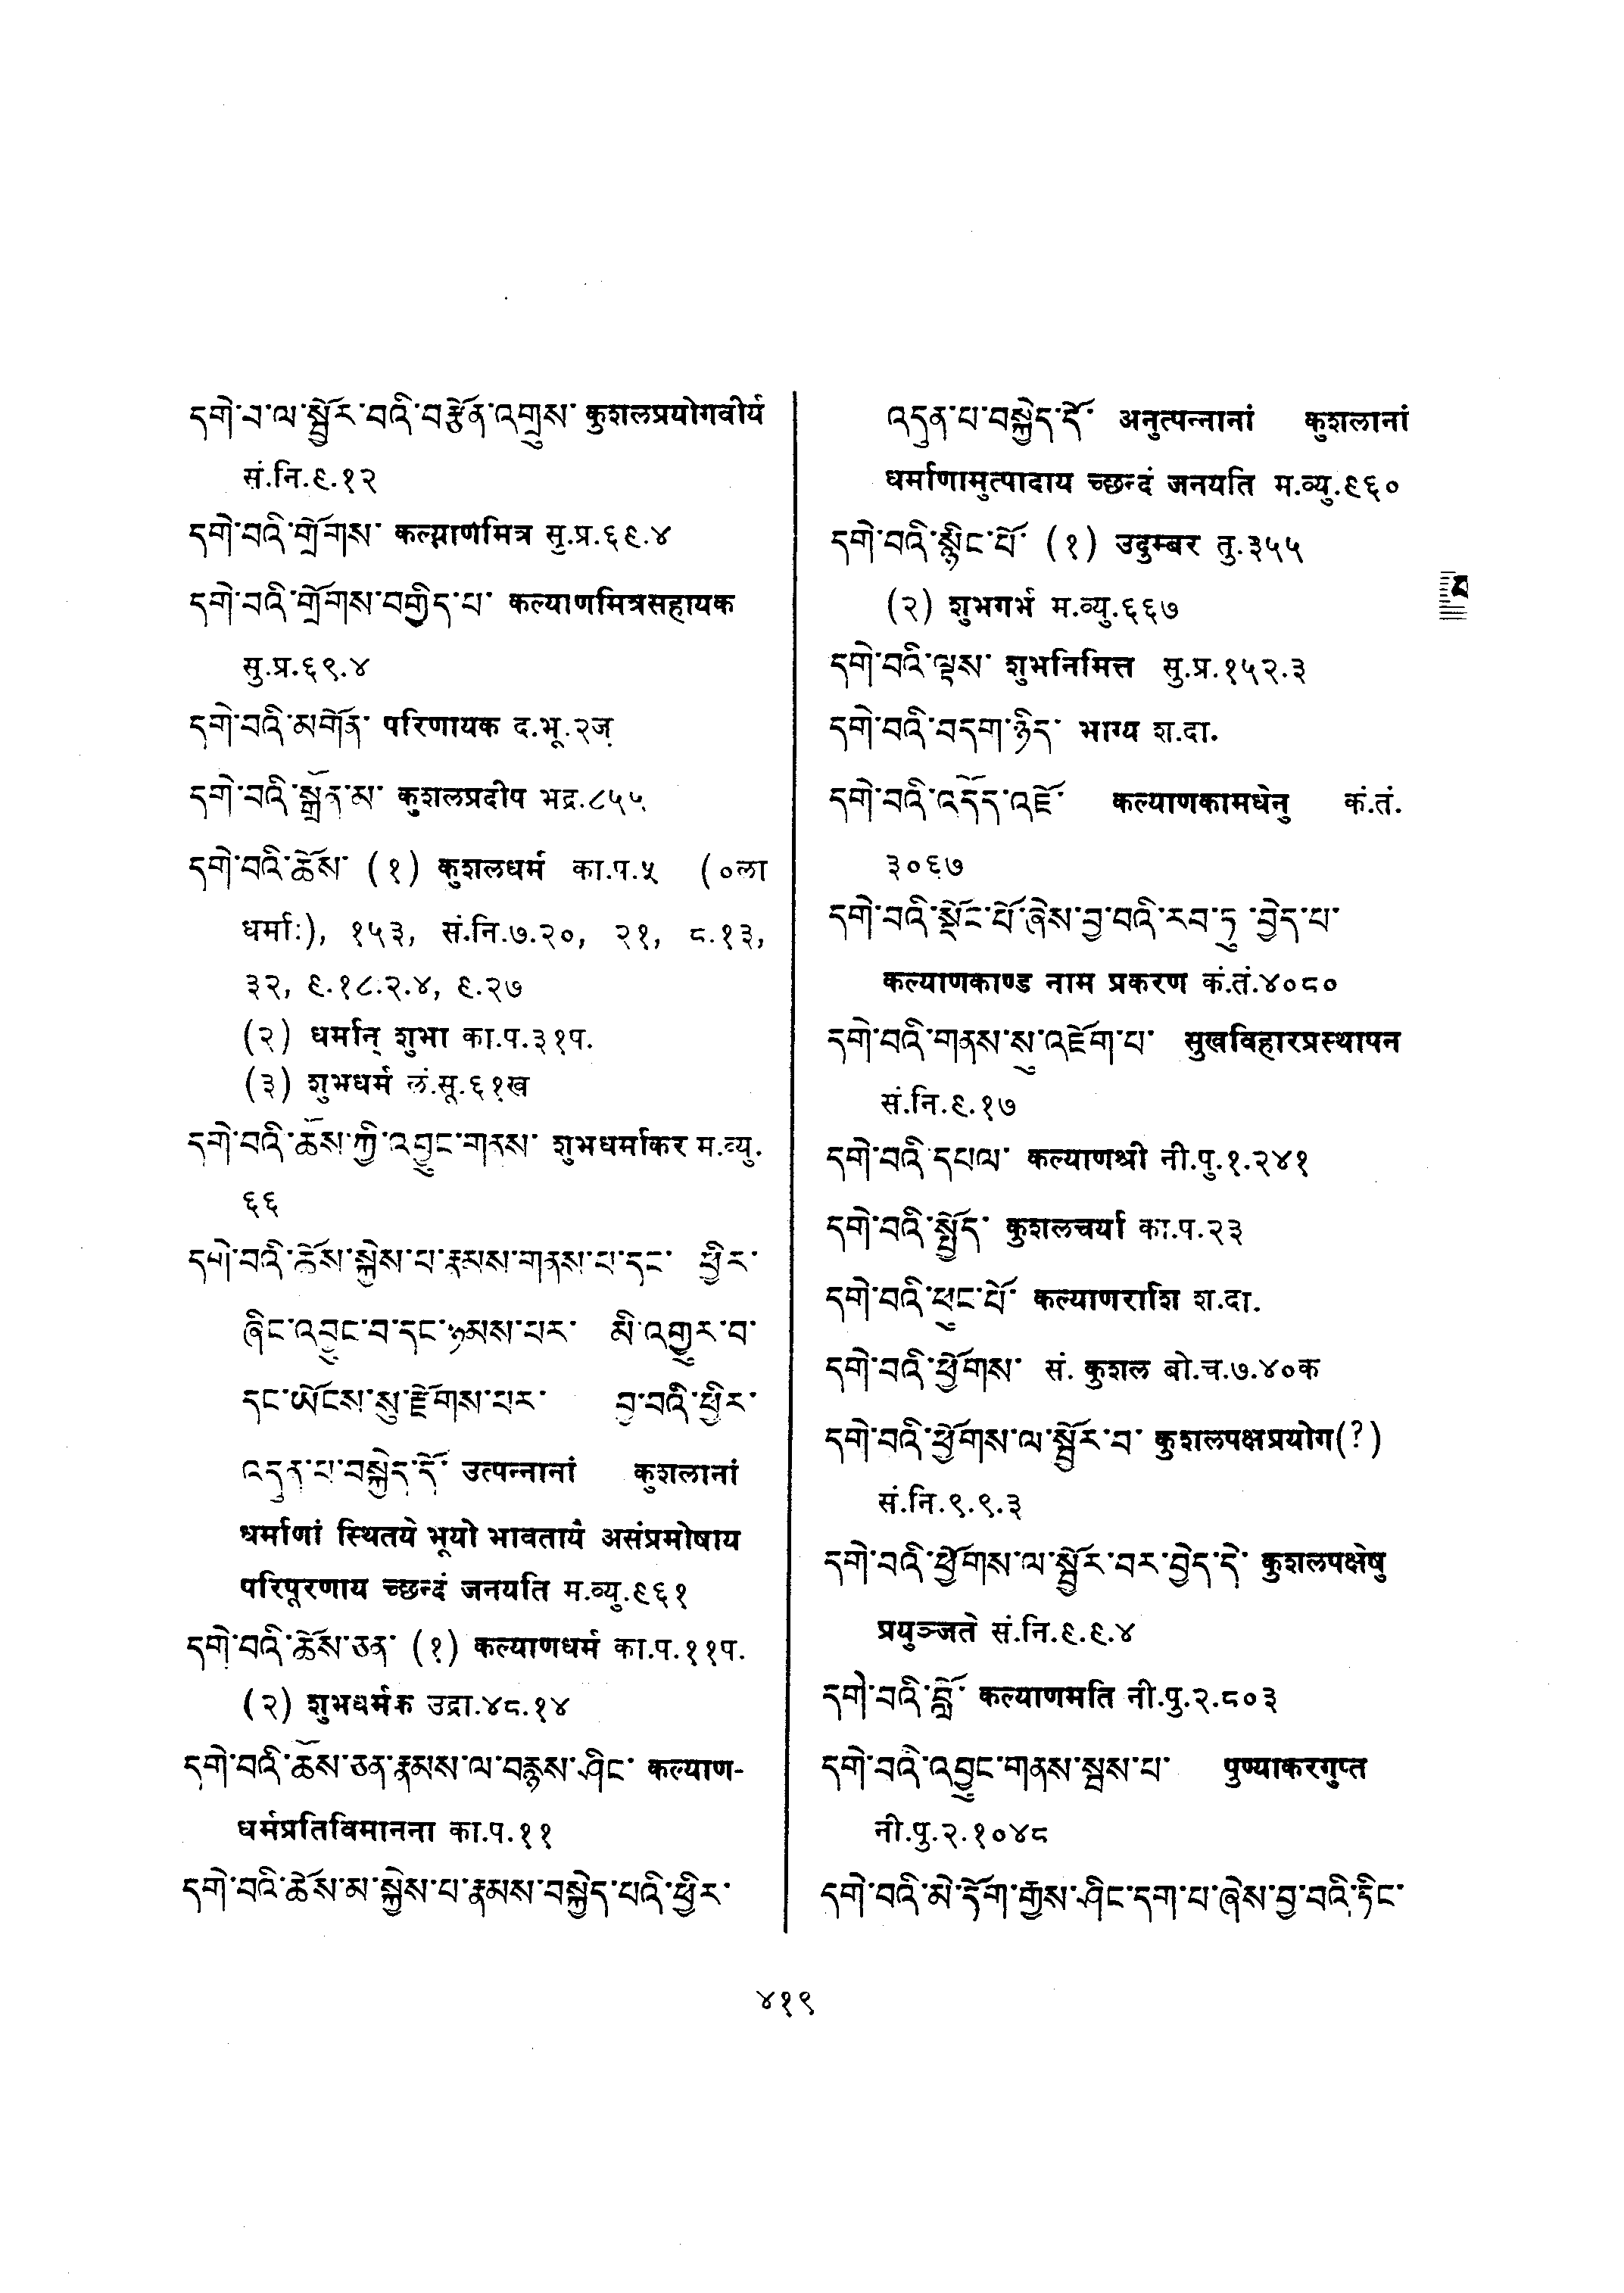 དགེ་བ་ལ་སྦྱོར་བའི་བརྩོན་འགྲུས་ कुशलप्रयोगवीर्य
सं.नि.९.१२
དགེ་བའི་གྲོགས་ कल्याणमित्र सु.प्र.६९.४
དགེ་བའི་གྲོགས་བགྱིད་པ་ कल्याणमित्रसहायक
सु.प्र.६९.४
དགེ་བའི་མགོན་ परिणायक द.भू.२ज
དགེ་བའི་སྒྲོན་མ་ कुशलप्रदीप भद्र.८५५
དགེ་བའི་ཆོས་ (१) कुशलधर्म का.प.५ (०ला
धर्माः), १५३, सं.नि.७.२०, २१, ८.१३,
३२, ९.१८.२.४, ९.२७
(२) धर्मान् शुभा का.प.३१प.
(३) शुभधर्म लं.सू.६१ख
དགེ་བའི་ཆོས་ཀྱི་འབྱུང་གནས་ शुभधर्माकर म.व्यु.
६६
དགེ་བའི་ཆོས་སྐྱེས་པ་རྣམས་གནས་པ་དང་ ཕྱིར་
ཞིང་འབྱུང་བ་དང་ཉམས་པར་ མི་འགྱུར་བ་
དང་ཡོངས་སུ་རྫོགས་པར་ བྱ་བའི་ཕྱིར་
འདུན་པ་བསྐྱེད་དོ་ उत्पन्नानां कुशलानां
धर्माणां स्थितये भूयो भावतायै असंप्रमोषाय
परिपूरणाय च्छन्दं जनयति म.व्यु.९६१
དགེ་བའི་ཆོས་ཅན་ (१) कल्याणधर्म का.प.११प.
(२) शुभधर्मक उद्रा.४८.१४
དགེ་བའི་ཆོས་ཅན་རྣམས་ལ་བརྙས་ཤིང་ कल्याण-
धर्मप्रतिविमानना का.प.११
དགེ་བའི་ཆོས་མ་སྐྱེས་པ་རྣམས་བསྐྱེད་པའི་ཕྱིར་
འདུན་པ་བསྐྱེད་དོ་ अनुत्पन्नानां कुशलानां
धर्माणामुत्पादाय च्छन्दं जनयति म.व्यु.९६०
དགེ་བའི་སྙིང་པོ་ (१) उदुम्बर तु.३५५
(२) शुभगर्भ म.व्यु.६६७
དགེ་བའི་ལྟས་ शुभनिमित्त सु.प्र.१५२.३
དགེ་བའི་བདག་ཉིད་ भाग्य श.दा.
དགེ་བའི་འདོད་འཇོ་ कल्याणकामधेनु कं.तं.
३०६७
དགེ་བའི་སྡོང་པོ་ཞེས་བྱ་བའི་རབ་ཏུ་བྱེད་པ་
कल्याणकाण्ड नाम प्रकरण कं.तं.४०८०
དགེ་བའི་གནས་སུ་འཇོག་པ་ सुखविहारप्रस्थापन
सं.नि.९.१७
དགེ་བའི་དཔལ་ कल्याणश्री नी.पु.१.२४१
དགེ་བའི་སྤྱོད་ कुशलचर्या का.प.२३
དགེ་བའི་ཕུང་པོ་ कल्याणराशि श.दा.
དགེ་བའི་ཕྱོགས་ सं. कुशल बो.च.७.४०क
དགེ་བའི་ཕྱོགས་ལ་སྦྱོར་བ་ कुशलपक्षप्रयोग(?)
सं.नि.९.९.३
དགེ་བའི་ཕྱོགས་ལ་སྦྱོར་བར་བྱེད་དེ་ कुशलपक्षेषु
प्रयुञ्जते सं.नि.९.९.४
དགེ་བའི་བློ་ कल्याणमति नी.पु.२.८०३
དགེ་བའི་འབྱུང་གནས་སྦས་པ་ पुण्याकरगुप्त
नी.पु.२.१०४८
དགེ་བའི་མེ་ཏོག་རྒྱས་ཤིང་དག་པ་ཞེས་བྱ་བའི་ཏིང་
४१९